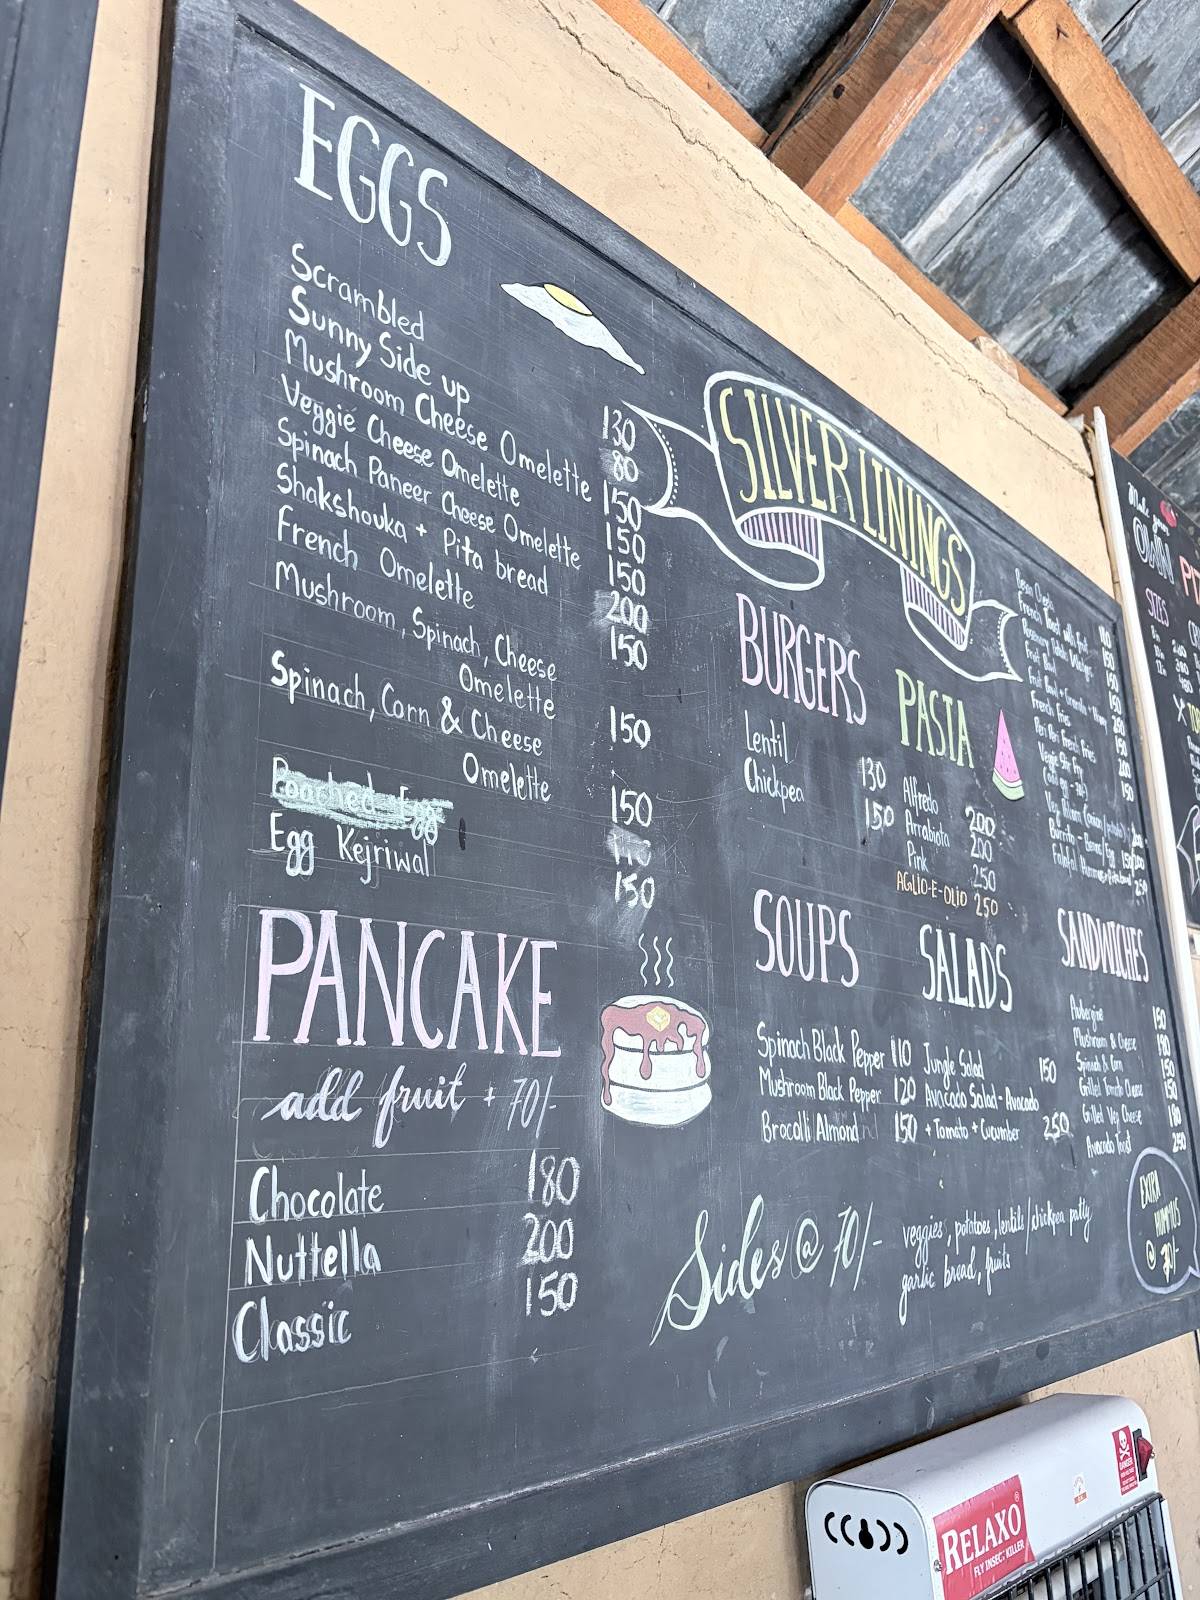 EGGS
Scrambled 130
Sunny Side up 80
Mushroom Cheese Omelette 150
Veggie Cheese Omelette 150
Spinach Paneer Cheese Omelette 150
Shakshouka + Pita bread 200
French Omelette 150
Mushroom, Spinach, Cheese
Omelette 150
Spinach, Corn & Cheese
Omelette 150
Poached Egg 110
Egg Kejriwal 150
PANCAKE
add fruit + 70/-
Chocolate 180
Nuttella 200
Classic 150
SILVER LININGS
BURGERS
Lentil 130
Chickpea 150
PASTA
Alfredo 200
Arrabiata 200
Pink 250
AGLIO-E-OLIO 250
French Toast with fruit
Rosemary Potato Wedges
Fruit Bowl
French Fries
Peri Peri French Fries
Veggie Stir Fry
SOUPS
Spinach Black Pepper 110
Mushroom Black Pepper 120
Brocolli Almond 150
SALADS
Jungle Salad 150
Avacado Salad - Avacado
+ Tomato + Cucumber 250
SANDWICHES
Aubergine 150
Mushroom & Cheese 190
Spinach & Corn 150
Grilled Tomato Cheese 150
Grilled Veg Cheese 180
Avacado Toast 250
Sides @ 70/-
veggies, potatoes, lentils/chickpea patty
garlic bread, fruits
EXTRA
HUMMUS
@ 70/-
Make your
OWN
SIZES
RELAXO
FLY INSECT KILLER
DANGER